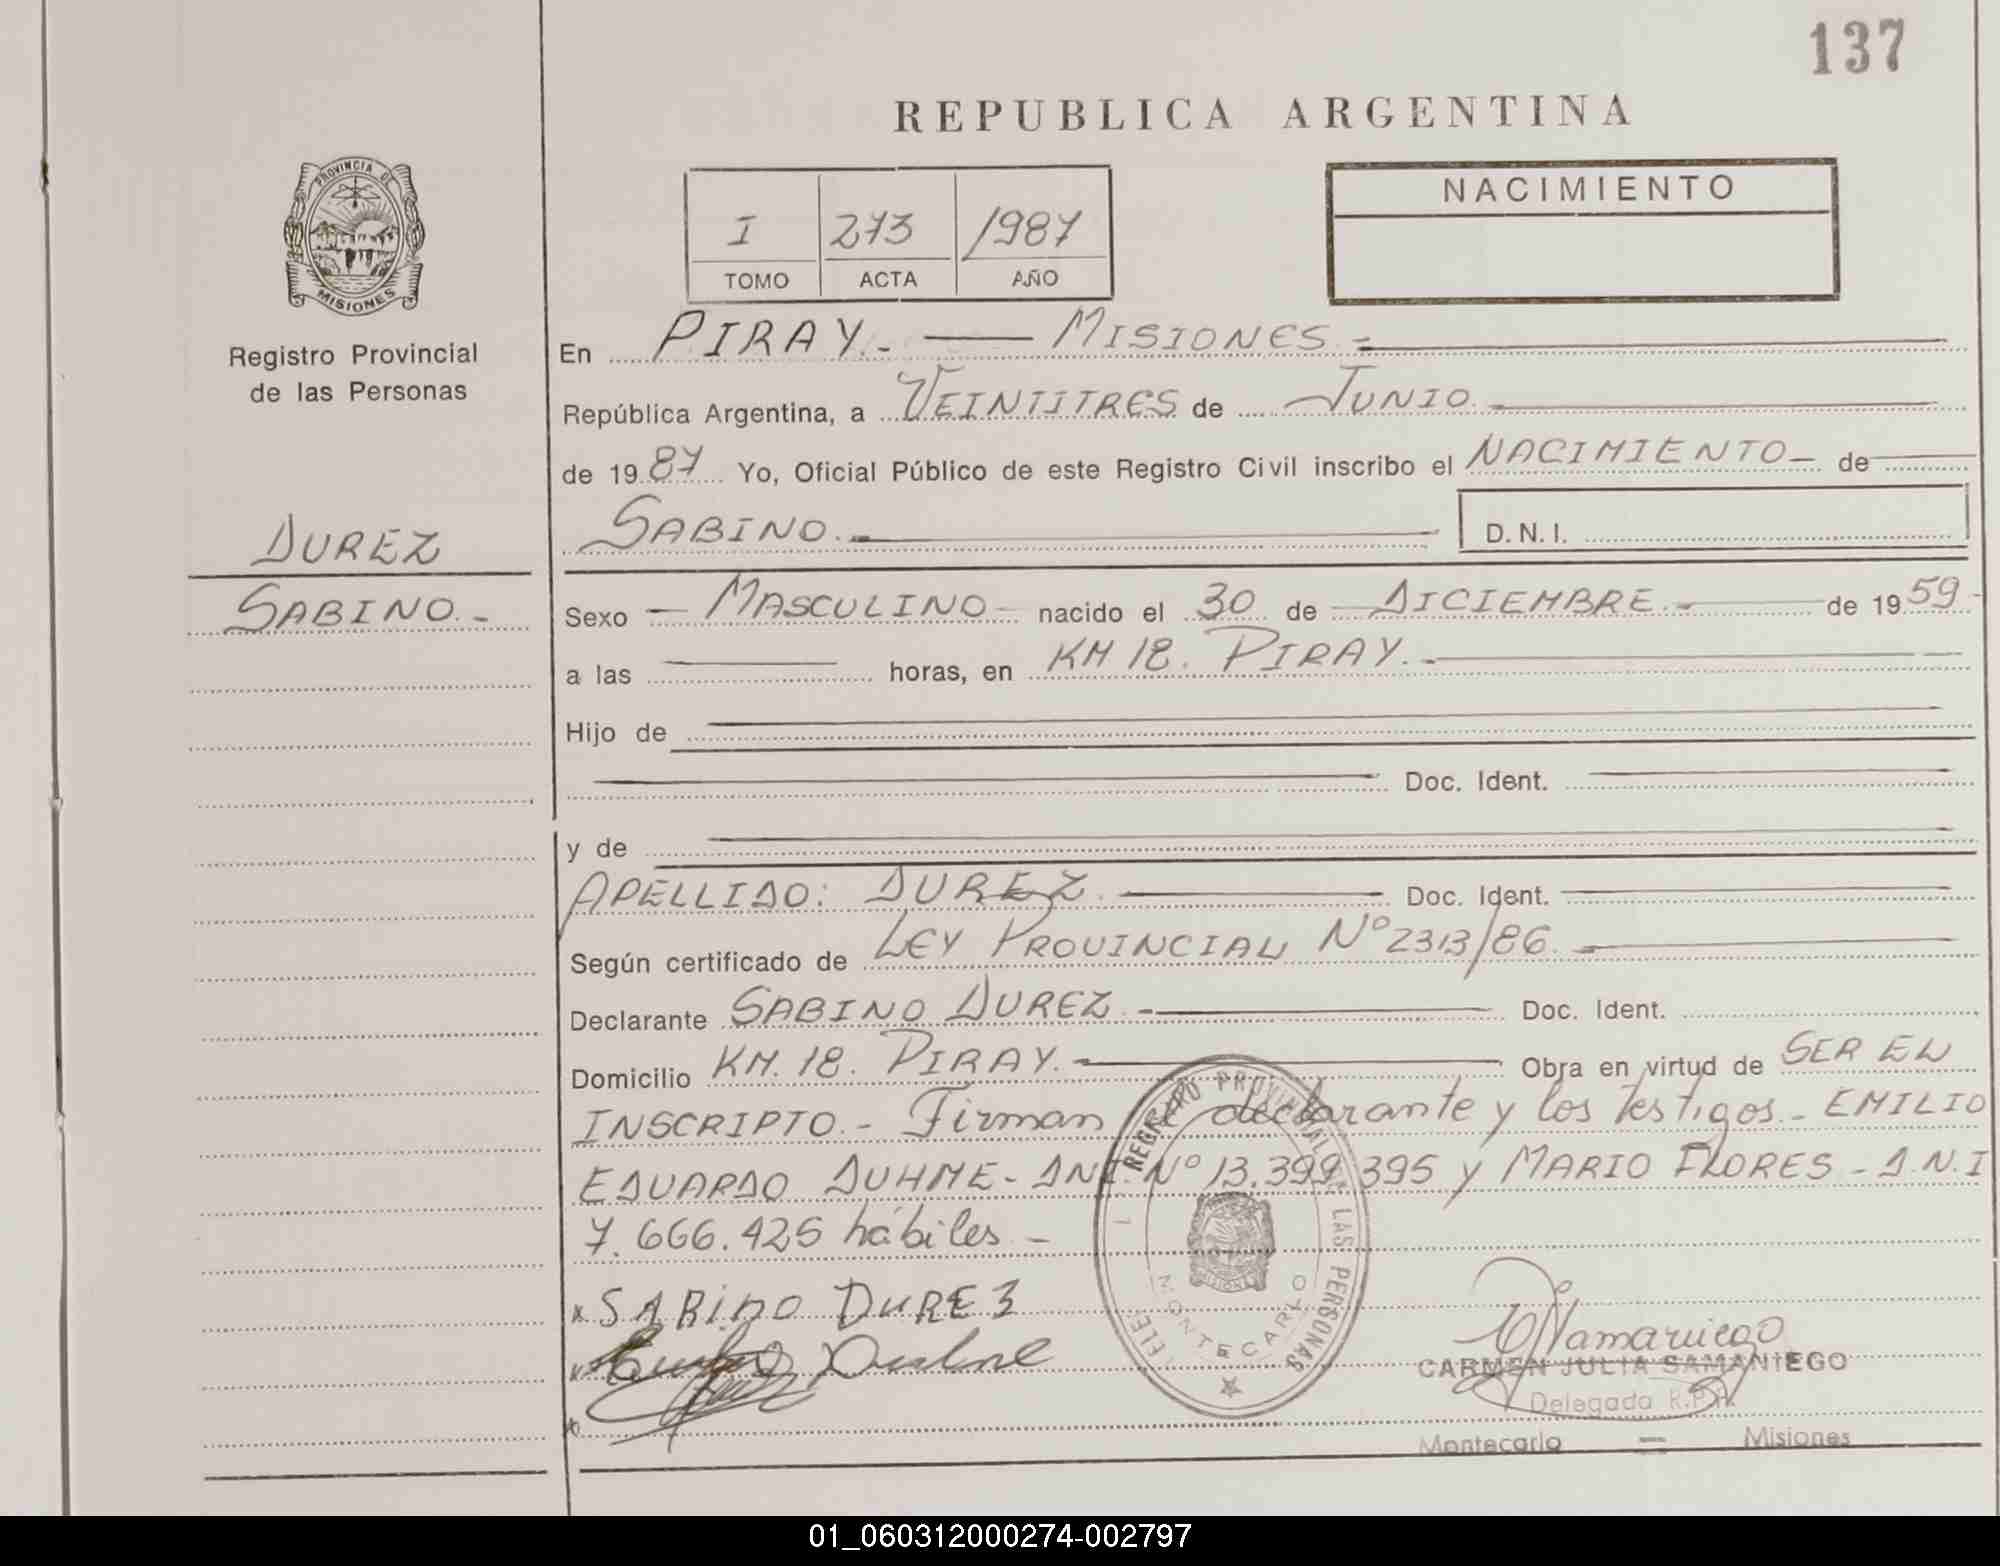 137
REPUBLICA ARGENTINA
PROVINCIA DE
MISIONES
Registro Provincial
de las Personas
I 273 1987
TOMO ACTA AÑO
NACIMIENTO
En PIRAY.- MISIONES.-
República Argentina, a VEINTITRES de JUNIO.
de 1987 Yo, Oficial Público de este Registro Civil inscribo el NACIMIENTO- de
SABINO.- D.N.I.
DUREZ
SABINO.-
Sexo - MASCULINO- nacido el 30 de DICIEMBRE.- de 1959-
a las horas, en KM 18. PIRAY.-
Hijo de
Doc. Ident.
y de
APELLIDO: DUREZ. Doc. Ident.
Según certificado de LEY PROVINCIAL Nº 2313/86.-
Declarante SABINO DUREZ.- Doc. Ident.
Domicilio KM. 18. PIRAY.- Obra en virtud de SER EL
INSCRIPTO.- Firman el declarante y los testigos.- EMILIO
EDUARDO DUHME- DNI. Nº 13.399.395 y MARIO FLORES - D.N.I
7.666.425 hábiles -
x SABINO DUREZ
REGISTRO PROVINCIAL DE LAS PERSONAS
MONTECARLO
CARMEN JULIA SAMANIEGO
Delegada R.P.P.
Montecarlo - Misiones
01_060312000274-002797